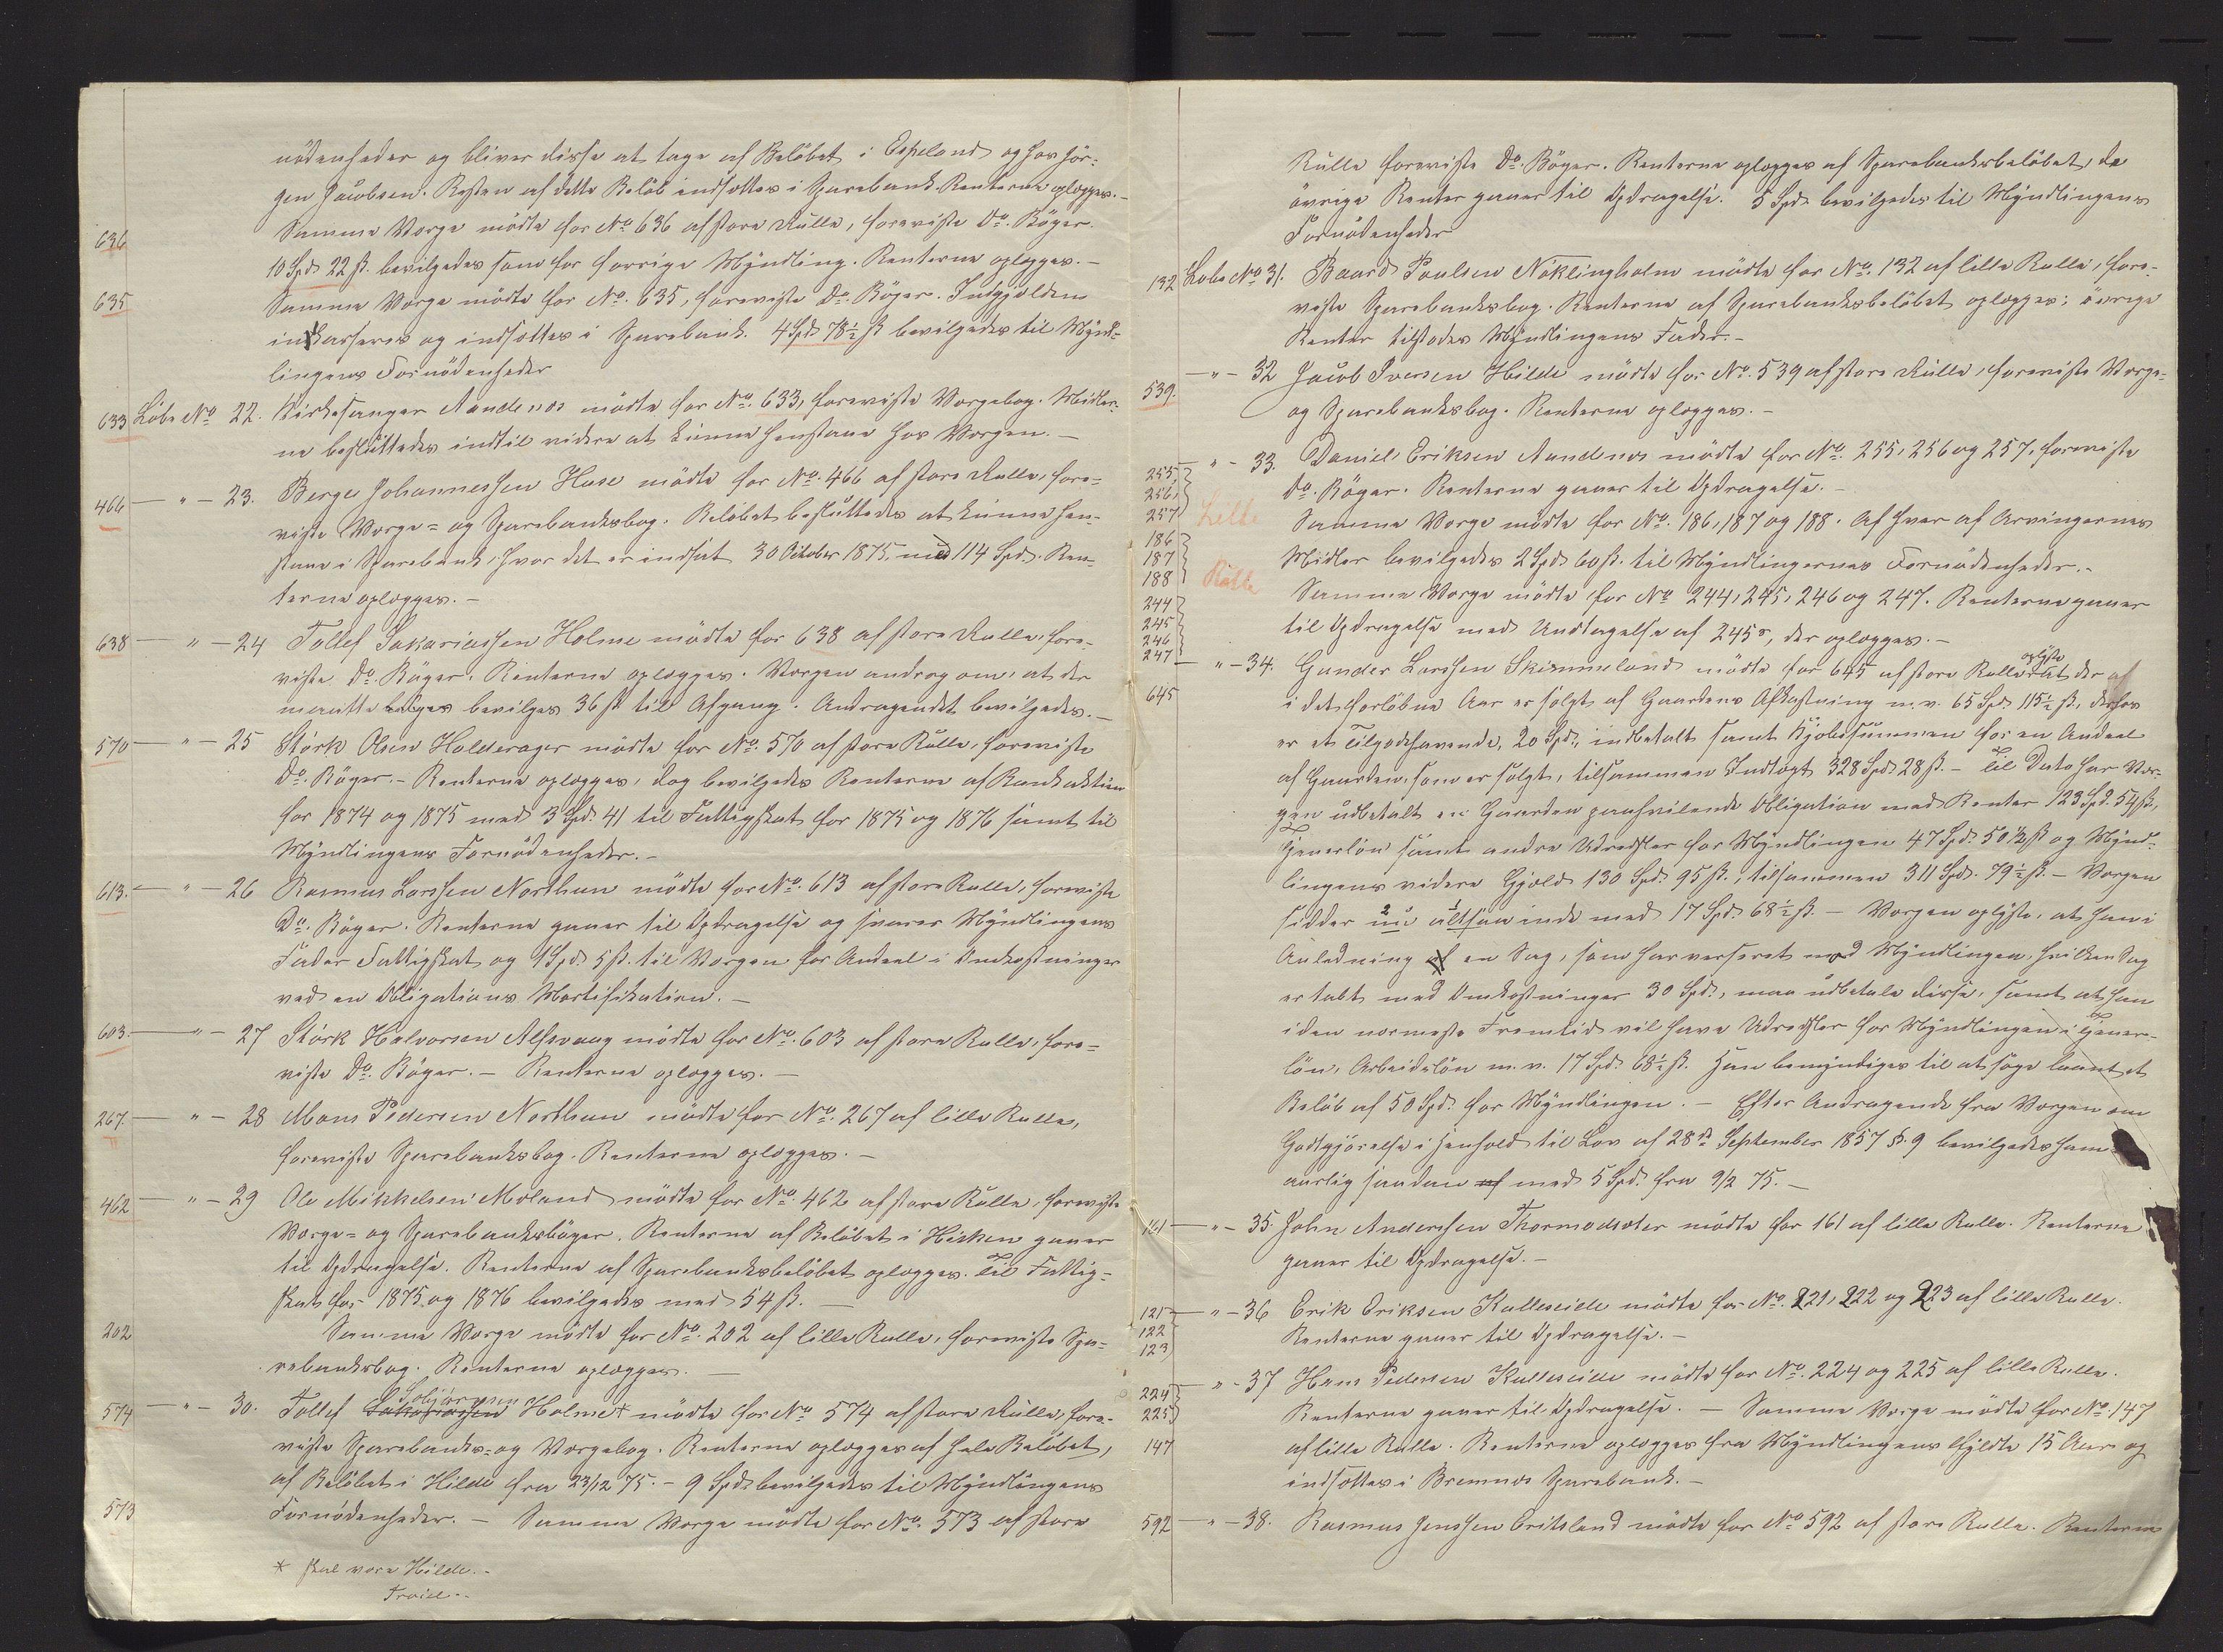 nödenheder og bliver disse at tage af Belöbet i Espeland og hos Jör-
gen Jacobsen. Resten af dette Belöb indsættes i Sparebank. Renterne oplægges.-
636 Samme Værge mödte for No 636 af store Rulle, foreviste Do Böger.
10 Spd. 22 ß. bevilgedes som for forrige Myndling. Renterne oplægges.-
635 Samme Værge mödte for No. 635, foreviste Do. Böger. Indgjælden
inkasseres og indsættes i Sparebank. 4 Spd. 78½ ß bevilgedes til Mynd-
lingens Fornödenheder
633 Löbe No 22. Kirkesanger Aandenos mödte for No. 633, foreviste Værgebog. Midler-
ne besluttedes indtil videre at kunne henstaae hos Værgen.-
466 — " — 23. Berge Johannessen Huse mödte for No. 466 af store Rulle, fore-
viste Værge- og Sparebanksbog. Belöbet besluttedes at kunne hen-
staae i Sparebank hvor det er indsat 30 October 1875 med 114 Spd. Ren-
terne oplægges.-
638 — " — 24 Tollef Sakariassen Holme mödte for 638 af store Rulle, fore-
viste Do. Böger. Renterne oplægges. Værgen androg om, at der
maatte bevilges 36 ß til Afgang. Andragendet bevilgedes.-
570 — " — 25 Störk Olsen Holderager mödte for No. 570 af store Rulle, foreviste
Do. Böger.- Renterne oplægges, dog bevilgedes Renterne af Bankaktien
for 1874 og 1875 med 3 Spd. 41 til Fattigskat for 1875 og 1876 samt til
Myndlingens Fornödenheder.-
613. — " — 26 Rasmus Larssen Northun mödte for No. 613 af store Rulle, foreviste
Do. Böger. Renterne gaaer til Opdragelse og svarer Myndlingens
Fader Fattigskat og 1 Spd. 5 ß. til Værgen for Andeel i Omkostninger
ved en Obligations Mortifikation.-
603. — " — 27 Störk Halvorsen Alsvaag mödte for No. 603 af store Rulle, fore-
viste Do. Böger.- Renterne oplægges.-
267. — " — 28 Mons Pedersen Northun mödte for No. 267 af lille Rulle,
foreviste Sparebanksbog. Renterne oplægges.-
462 — " — 29 Ole Mikkelsen Moland mödte for No. 462 af store Rulle, foreviste
Værge- og Sparebanksböger. Renterne af Belöbet i Hisken gaaer
til Opdragelse. Renterne af Sparebanksbelöbet oplægges. Til Fattig-
skat for 1875 og 1876 bevilgedes med 54 ß.-
202 Samme Værge mödte for No. 202 af lille Rulle, foreviste Spa-
rebanksbog. Renterne oplægges.-
574 — " — 30. Tollef Sakariassen Holme+ mödte for No 574 af store Rulle, fore-
viste Sparebanks- og Værgebog. Renterne oplægges af hele Belöbet,
af Belöbet i Hilde fra 23/12 75.- 9 Spd. bevilgedes til Myndlingens
573 Fornödenheder.- Samme Værge mödte for No. 573 af store
* skal være Hilde.-
Rulle foreviste Do. Böger. Renterne oplægges af Sparebanksbelöbet, de
övrige Renter gaaer til Opdragelse. 5 Spd. bevilgedes til Myndlingens
Fornödenheder
132 Löbe No 31. Baard Poulsen Nöklingholm mödte for No. 132 af lille Rulle, fore-
viste Sparebanksbog. Renterne af Sparebanksbelöbet oplægges; övrige
Renter tilstodes Myndlingens Fader.-
539. — " — 32 Jacob Iversen Hilde mödte for No. 539 af store Rulle, foreviste Værge-
og Sparebanksbog. Renterne oplægges.-
255, 256, 257 " — 33. Daniel Eriksen Aandenos mödte for No. 255, 256 og 257, foreviste
do. Böger. Renterne gaaer til Opdragelse.-
Lille Rulle
186 187 188 Samme Værge mödte for No. 186, 187 og 188. Af hver af Arvingernes
Midler bevilgedes 2 Spd. 60 ß. til Myndlingernes Fornödenheder.-
244 245 246 247 Samme Værge mödte for No 244, 245, 246 og 247. Renterne gaaer
til Opdragelse med Undtagelse af 245s, der oplægges.-
645 — " — 34. Gunder Larssen Skimmeland mödte for 645 af store Rulle oplyste at der af
i det forlöbne Aar er solgt af Gaardens Afkastning m.v. 65 Spd. 115½ ß., derhos
er et Tilgodehavende, 20 Spd., indbetalt samt Kjöbesummen for en Andeel
af Gaarden, som er solgt, tilsammen Indtægt 328 Spd. 28 ß.- Til Dato har Vær-
gen udbetalt en Gaarden paahvilende Obligation med Renter 123 Spd. 54 ß,
Tjenerlön samt andre Udredsler for Myndlingen 47 Spd. 50½ ß og Mynd-
lingens videre Gjæld 130 Spd. 95 ß., tilsammen 311 Spd. 79½ ß.- Værgen
sidder nu altsaa inde med 17 Spd. 68½ ß.- Værgen oplyste, at han i
Anledning af en Sag, som har verseret med Myndlingen, hvilken Sag
er tabt med Omkostninger 30 Spd., maa udbetale disse, samt at han
i den nærmeste Fremtid vil have Udredsler for Myndlingen i Tjener-
lön, Arbeidslön m.v. 17 Spd. 68½ ß. Han bemyndiges til at söge laant et
Belöb af 50 Spd. for Myndlingen.- Efter Andragende fra Værgen om
Godtgjörelse i Henhold til Lov af 28de September 1857 §. 9 bevilgedes ham
aarlig saadan af med 5 Spd. fra 9/2 75.-
161 — " — 35. John Anderssen Thormodsæter mödte for 161 af lille Rulle. Renterne
gaaer til Opdragelse.-
121 122 123 " — 36 Erik Eriksen Kulleseide mödte for No. 221, 222 og 223 af lille Rulle.
Renterne gaaer til Opdragelse.-
224 225 " - 37 Hans Pedersen Kulleseide mödte for No. 224 og 225 af lille Rulle.
Renterne gaaer til Opdragelse.- Samme Værge mödte for No. 147
147 af lille Rulle. Renterne oplægges fra Myndlingens fyldte 15 Aar og
indsættes i Bremnæs Sparebank.-
592 — " — 38. Rasmus Jenssen Eritsland mödte for No 592 af store Rulle. Renterne